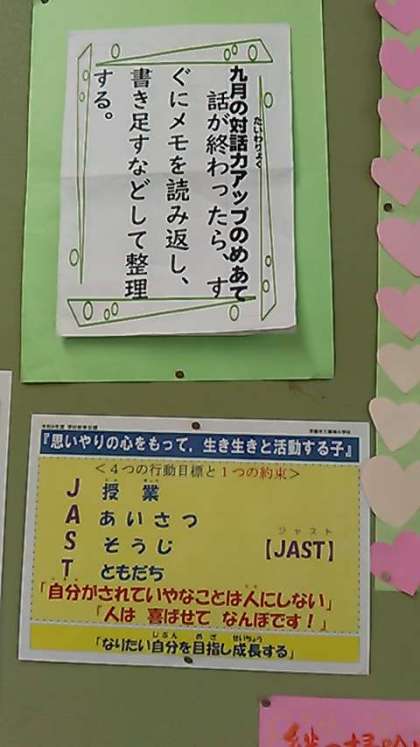 九月の対話力アップのめあて
たいわりょく
話が終わったら、す
ぐにメモを読み返し、
書き足すなどして整理
する。
『思いやりの心をもって，生き生きと活動する子』
＜４つの行動目標と１つの約束＞
J 授業
A あいさつ
S そうじ
T ともだち
ジャスト
【JAST】
「自分がされていやなことは人にしない」
「人は 喜ばせて なんぼです！」
じぶん めざ せいちょう
「なりたい自分を目指し成長する」